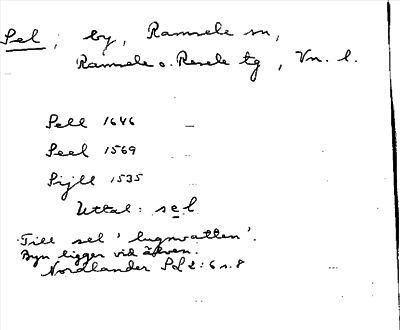 Sel, by, Ramsele sn,
Ramsele o. Resele tg, Vn. l.
Sell 1646
Seel 1569
Sijll 1535
Uttal: sel
Till sel 'lugnvatten'.
Byn ligger vid älven.
Nordlander 2:6 s. 8